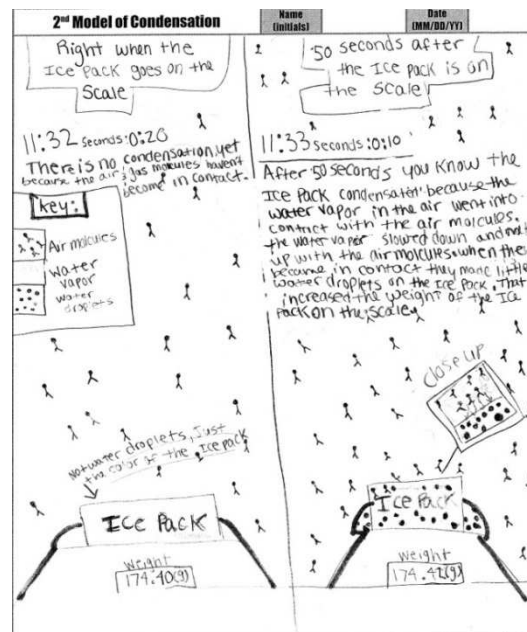 2nd Model of Condensation
Name
(initials)
Date
(MM/DD/YY)
Right when the
Ice Pack goes on the
Scale
11:32 seconds:0:20
There is no condensation yet
because the air, gas molecules haven't
become in contact.
key:
Air molcules
water
vapor
water
droplets
Not water droplets, Just
the color of the Ice pack
Ice Pack
Weight
174.40(g)
50 seconds after
the Ice pack is on
the Scale
11:33 seconds:0:10
After 50 seconds you know the
Ice Pack condensated because the
water vapor in the air went into
contact with the air molcules.
the water vapor slowed down and met
up with the air molcules. when they
became in contact they made little
water droplets on the Ice Pack. That
increased the weight of the Ice
Pack on the scale.
close up
Ice Pack
weight
174.42(g)